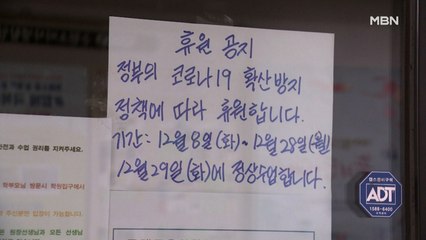 MBN
휴원 공지
정부의 코로나19 확산방지
정책에 따라 휴원합니다.
기간: 12월 8일(화)~12월 28일(월)
12월 29일(화)에 정상수업합니다.
안전과 수업 권리를 지켜주세요.
ADT
1588-6400